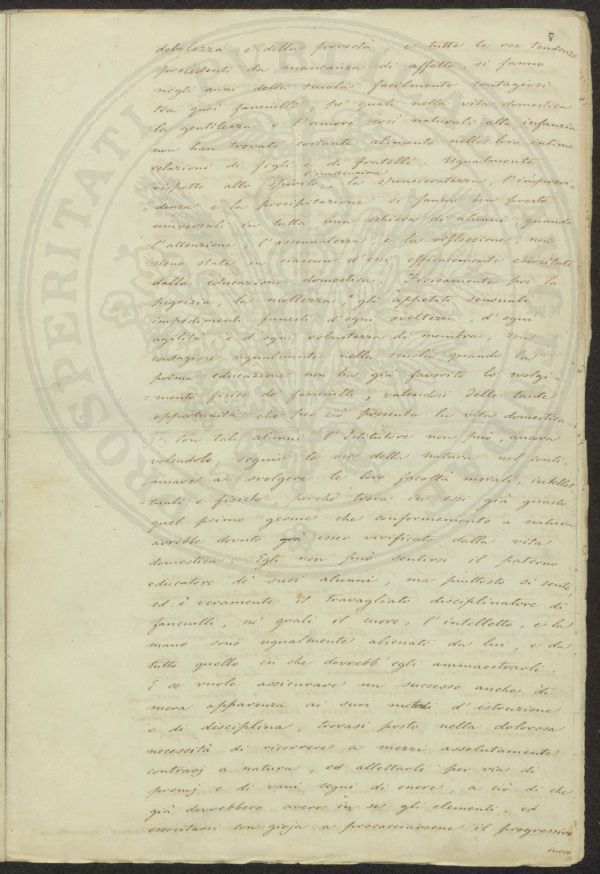 5
debolezza e della povertà, e tutte le ree tendenze
procedenti da mancanza di affetto, si fanno
negli anni della scuola facilmente contagiosi
tra quei fanciulli, pe' quali nella vita domestica
la gentilezza e l'amore così naturali alla infanzia
non han trovato costante alimento nelle loro intime
relazioni di figli e di fratelli. Ugualmente
rispetto allo Spirito, la spensieratezza, l'imprevi-
-denza e la precipitazione si fanno ben presto
universali in tutta una schiera di alunni, quando
l'attenzione, l'assennatezza, e la riflessione, non
sieno state in ciascun d'essi efficacemente esercitate
dalla educazione domestica. Fisicamente poi la
pigrizia, la mollezza, gli appetiti sensuali
impedimenti funesti d'ogni sveltezza, d'ogni
agilità e d'ogni robustezza di membra, son
contagiosi ugualmente nella scuola quando la
prima educazione non ha già favorito lo svolgi-
-mento fisico de' fanciulli, valendosi delle tante
opportunità che per ciò presenta la vita domestica.
Con tali alunni l'Istitutore non può, ancora
volendolo seguir la via della natura nel conti-
-nuare a svolgere le loro facoltà morali, intellet-
-tuali e fisiche perchè trova in essi già guasto
quel primo germe che conformemente a natura
avrebbe dovuto già esser vivificato dalla vita
domestica. Egli non può sentirsi il paterno
educatore de' suoi alunni, ma piuttosto si sente,
ed è veramente il travagliato disciplinatore di
fanciulli, ne' quali il cuore, l'intelletto, e la
mano sono ugualmente alienati da lui, e da
tutto quello in che dovrebb'egli ammaestrarli.
E se vuole assicurare un successo anche di
mera apparenza ai suoi metodi d'istruzione
e di disciplina, trovasi posto nella dolorosa
necessità di ricorrere a mezzi assolutamente
contrarj a natura, ed allettarli per via di
premj e di vani segni di onore, a ciò di che
già dovrebbero avere in se gli elementi, ed
esercitarsi con gioja a procacciarsene il progressivo